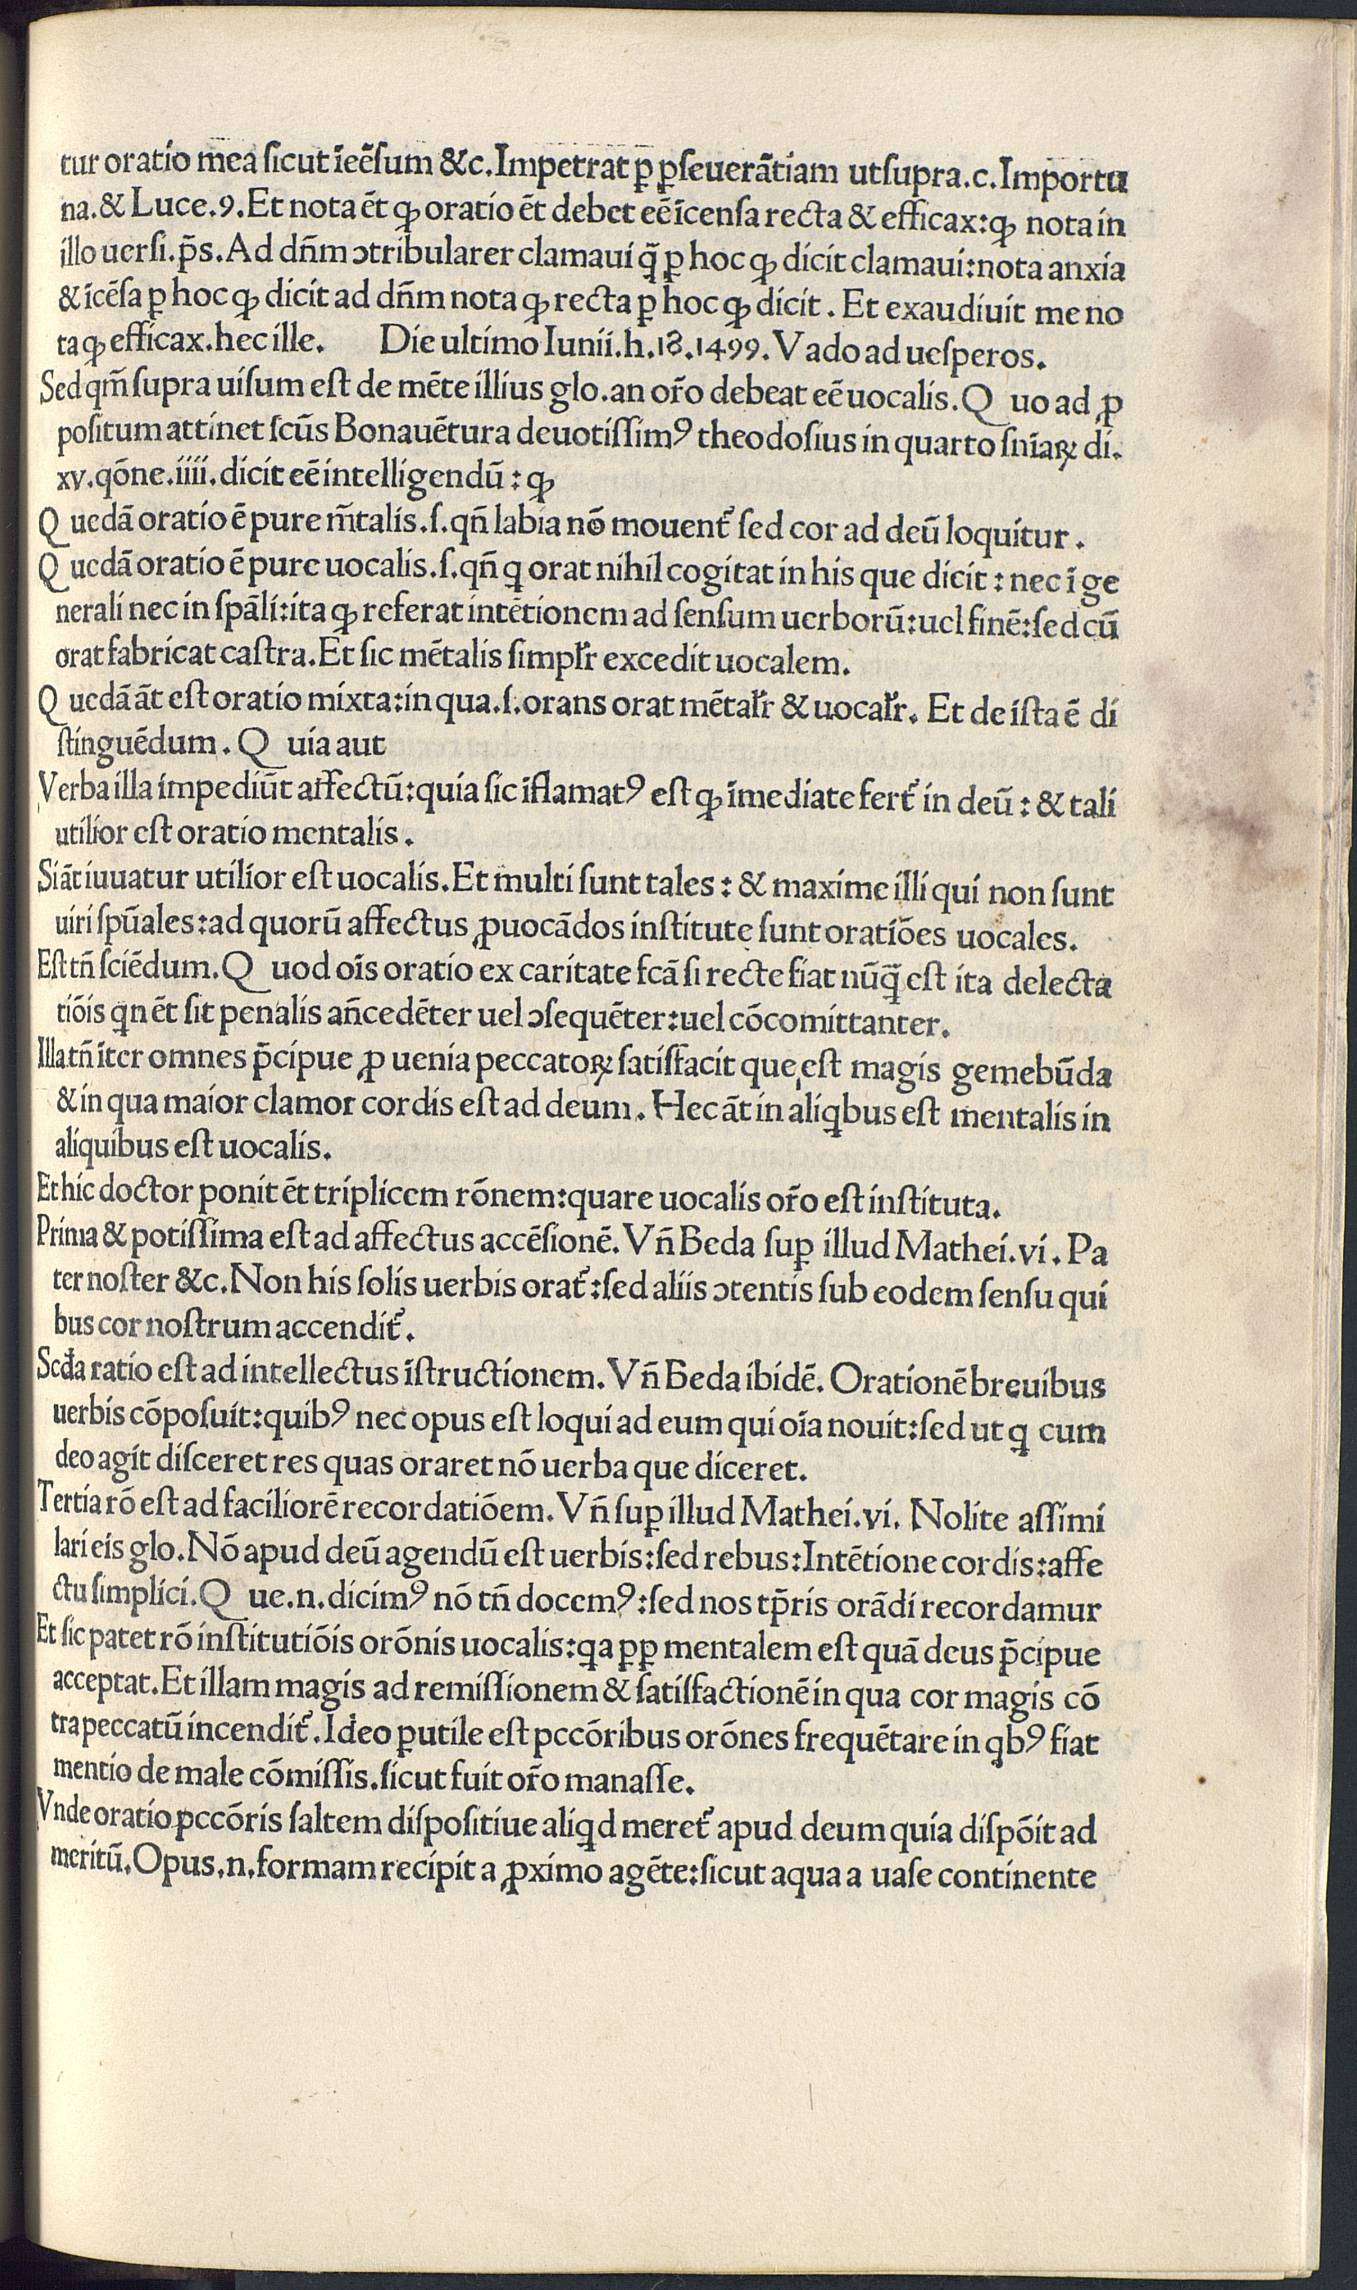 tur oratio mea sicut īcēſum &c. Impetrat ꝑ ꝑſeuerātiam utſupra.c. Importu
na.& Luce.9. Et nota ēt ꝙ oratio ēt debet eē īcenſa recta & efficax: ꝙ nota in
illo uerſi. p̄s. Ad dn̄m ↄtribularer clamaui q̄ ꝑ hoc ꝙ dicit clamaui: nota anxia
& īcēſa ꝑ hoc ꝙ dicit ad dn̄m nota ꝙ recta ꝑ hoc ꝙ dicit. Et exaudiuit me no
ta ꝙ efficax. hec ille. Die ultimo Iunii.h.18.1499. Vado ad ueſperos.
Sed qm̄ ſupra uiſum eſt de mēte illius glo. an or̄o debeat eē uocalis. Q uo ad ꝓ
poſitum attinet ſcūs Bonauētura deuotiſſimꝰ theodoſius in quarto ſnīaꝝ di.
xv. qōne. iiii. dicit eē intelligendū: ꝙ
Q uedā oratio ē pure m̄talis. ſ. qn̄ labia nō mouent᷑ ſed cor ad deū loquitur.
Q uedā oratio ē pure uocalis. ſ. qn̄ ꝗ orat nihil cogitat in his que dicit: nec ī ge
nerali nec in ſpāli: ita ꝙ referat intētionem ad ſenſum uerborū: uel finē: ſed cū
orat fabricat caſtra. Et ſic mētalis ſimpꝉr excedit uocalem.
Q uedā āt eſt oratio mixta: in qua. ſ. orans orat mētaꝉr & uocaꝉr. Et de iſta ē di
ſtinguēdum. Q uia aut
Verba illa impediūt affectū: quia ſic īflamatꝰ eſt ꝙ īmediate fert᷑ in deū: & tali
utilior eſt oratio mentalis.
Si āt iuuatur utilior eſt uocalis. Et multi ſunt tales: & maxime illi qui non ſunt
uiri ſpūales: ad quorū affectus ꝓuocādos inſtitute ſunt oratiōes uocales.
Eſt tn̄ ſciēdum. Q uod oīs oratio ex caritate fcā ſi recte fiat nūq̄ eſt ita delecta
tiōis ꝗn ēt ſit penalis an̄cedēter uel ↄſequēter: uel cōcomittanter.
Illa tn̄ īter omnes p̄cipue ꝓ uenia peccatoꝝ ſatiſfacit que eſt magis gemebūda
& in qua maior clamor cordis eſt ad deum. Hec āt in aliꝗbus eſt mentalis in
aliquibus eſt uocalis.
Et hic doctor ponit ēt triplicem rōnem: quare uocalis or̄o eſt inſtituta.
Prima & potiſſima eſt ad affectus accēſionē. Vn̄ Beda ſuꝑ illud Mathei. vi. Pa
ter noſter &c. Non his ſolis uerbis orat᷑: ſed aliis ↄtentis ſub eodem ſenſu qui
bus cor noſtrum accendit᷑.
Scđa ratio eſt ad intellectus īſtructionem. Vn̄ Beda ibidē. Orationē breuibus
uerbis cōpoſuit: quibꝰ nec opus eſt loqui ad eum qui oīa nouit: ſed ut ꝗ cum
deo agit diſceret res quas oraret nō uerba que diceret.
Tertia rō eſt ad faciliorē recordatiōem. Vn̄ ſuꝑ illud Mathei. vi. Nolite aſſimi
lari eis glo. Nō apud deū agendū eſt uerbis: ſed rebus: Intētione cordis: affe
ctu ſimplici. Q ue.n. dicimꝰ nō tn̄ docemꝰ: ſed nos tp̄ris orādi recordamur
Et ſic patet rō inſtitutiōis orōnis uocalis: ꝗa ꝓꝑ mentalem eſt quā deus p̄cipue
acceptat. Et illam magis ad remiſſionem & ſatiſfactionē in qua cor magis cō
tra peccatū incendit᷑. Ideo ꝑutile eſt pccōribus orōnes frequētare in ꝗbꝰ fiat
mentio de male cōmiſſis. ſicut fuit or̄o manaſſe.
Vnde oratio pccōris ſaltem diſpoſitiue aliꝗd meret᷑ apud deum quia diſpōit ad
meritū. Opus.n. formam recipit a ꝓximo agēte: ſicut aqua a uaſe continente